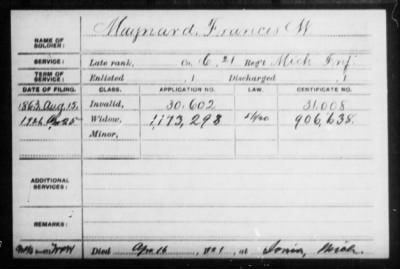 NAME OF SOLDIER: Maynard, Frances W
SERVICE: Late rank, Co. G, 21 Reg't Mich Inf
TERM OF SERVICE: Enlisted , 1 Discharged , 1
DATE OF FILING. CLASS. APPLICATION NO. LAW. CERTIFICATE NO.
1863 Aug. 13, Invalid, 30.602 31,008
Widow, 1,173,298 906,638.
Minor,
ADDITIONAL SERVICES:
REMARKS:
Died Apr. 16, 1921, at Ionia, Mich.